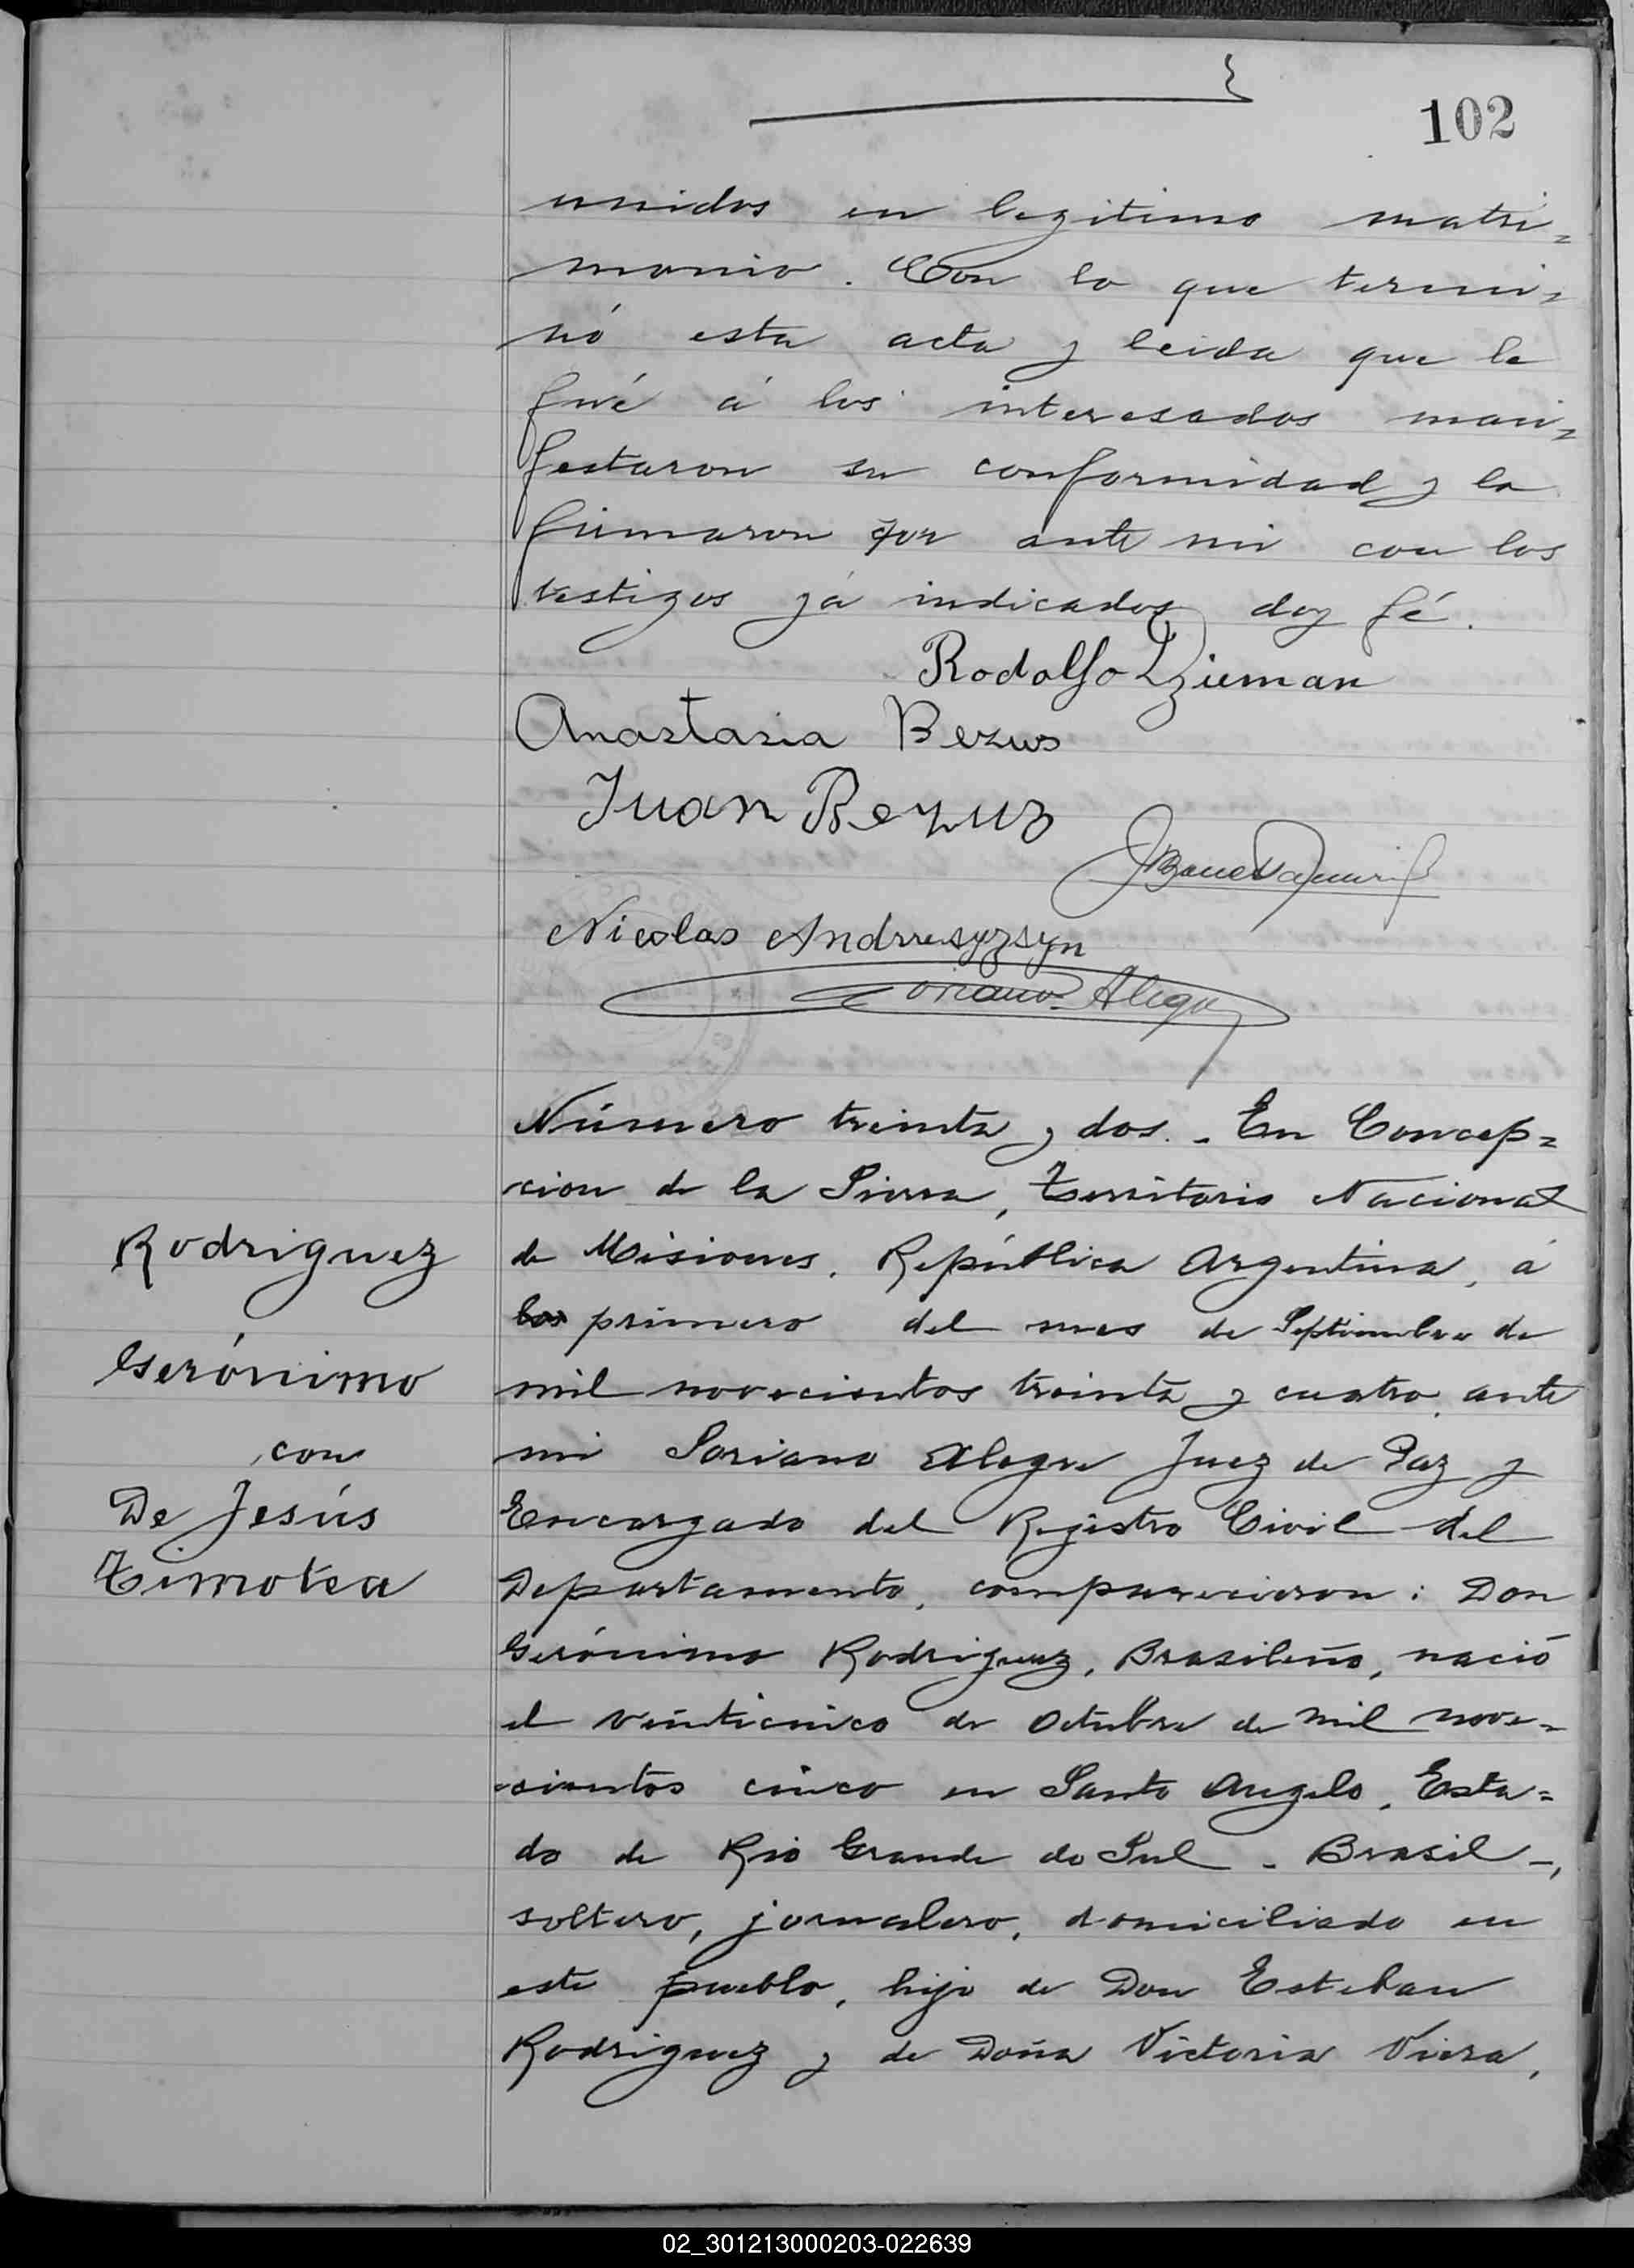 102
unidos en legitimo matri=
monio. Con lo que termi=
nó esta acta y leida que le
fué á los interesados mani=
festaron su conformidad y la
firmaron por ante mi con los
testigos yá indicados doy fé.
Rodolfo Dzieman
Anastasia Bezus
Juan Bezuz
Nicolas
Soriano Alegre
Número treinta y dos. - En Concep=
cion de la Sierra, Territorio Nacional
de Misiones, República Argentina, á
los primero del mes de Septiembre de
mil novecientos treinta y cuatro, ante
mi Soriano Alegre Juez de Paz y
Encargado del Registro Civil del
Departamento, comparecieron: Don
Gerónimo Rodriguez, Brasileño, nació
el veinticinco de Octubre de mil nove=
cientos cinco en Santo Angelo, Esta=
do de Rio Grande do Sul - Brasil -,
soltero, jornalero, domiciliado en
este pueblo, hijo de Don Esteban
Rodriguez y de Doña Victoria Viera,
Rodriguez
Gerónimo
con
De Jesús
Timotea
02_301213000203-022639